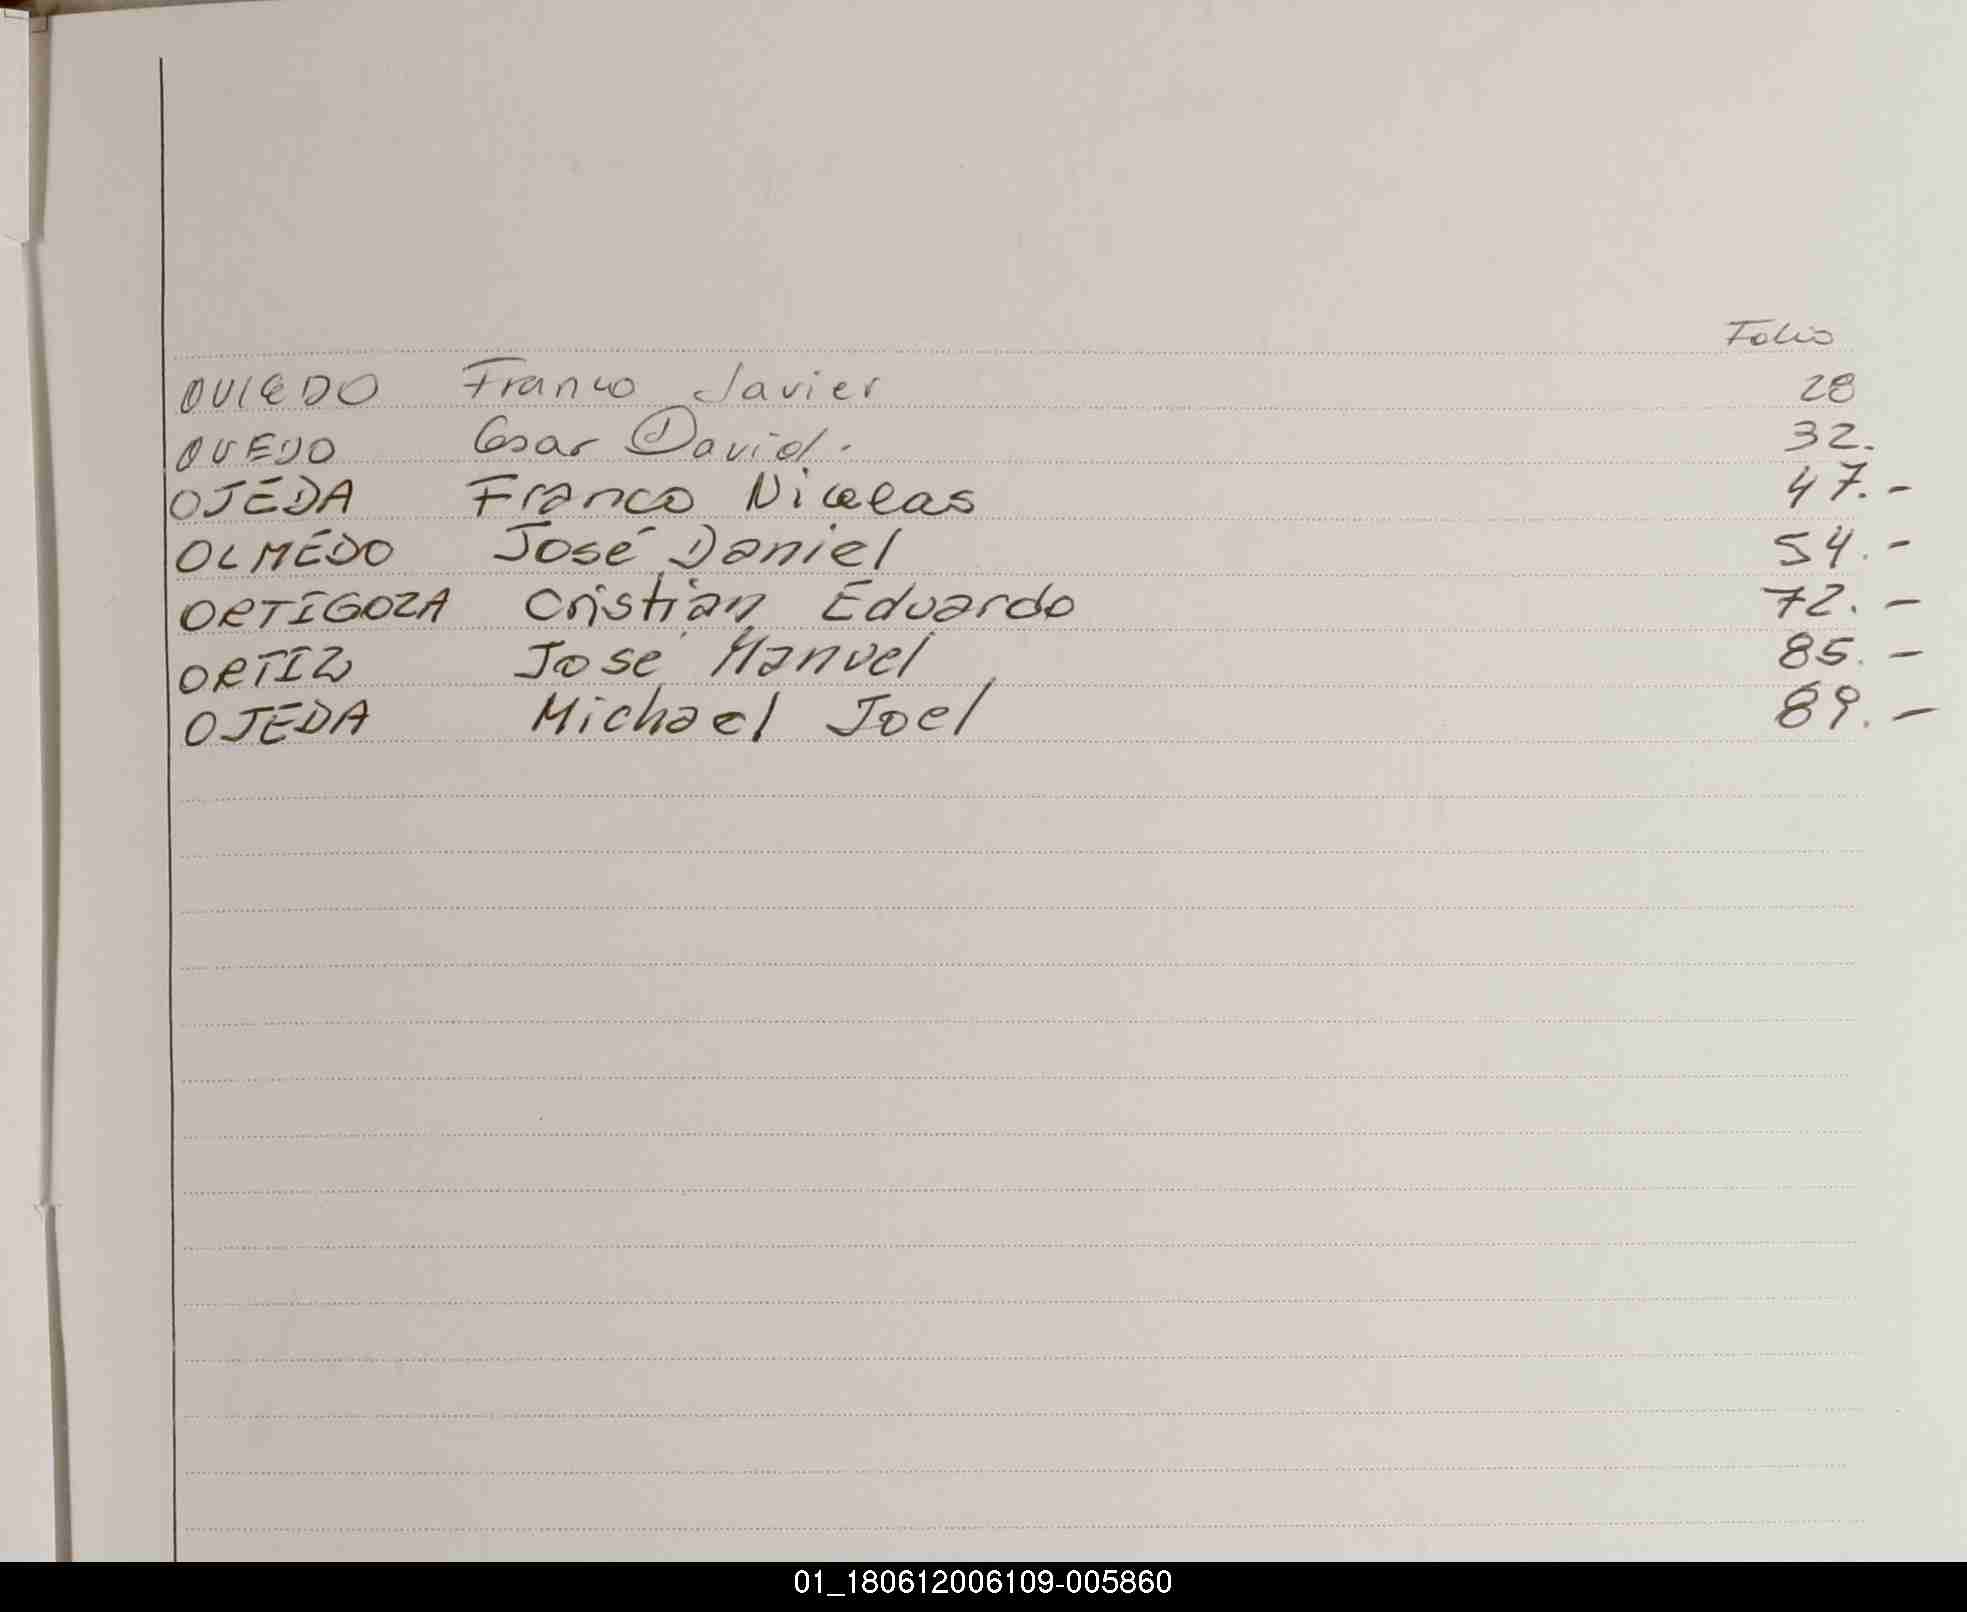 Folio
OVIEDO Franco Javier 28
OVEJO Cesar David. 32.
OJEDA Franco Nicolas 47.-
OLMEDO José Daniel 54.-
ORTIGOZA Cristian Eduardo 72.-
ORTIZ José Manuel 85.-
OJEDA Michael Joel 89.-
01_180612006109-005860